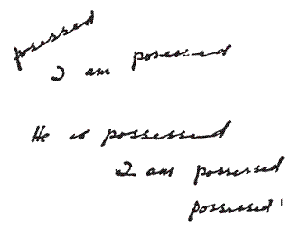 possessed
I am possessed
He is possessed
I am possessed
possessed!